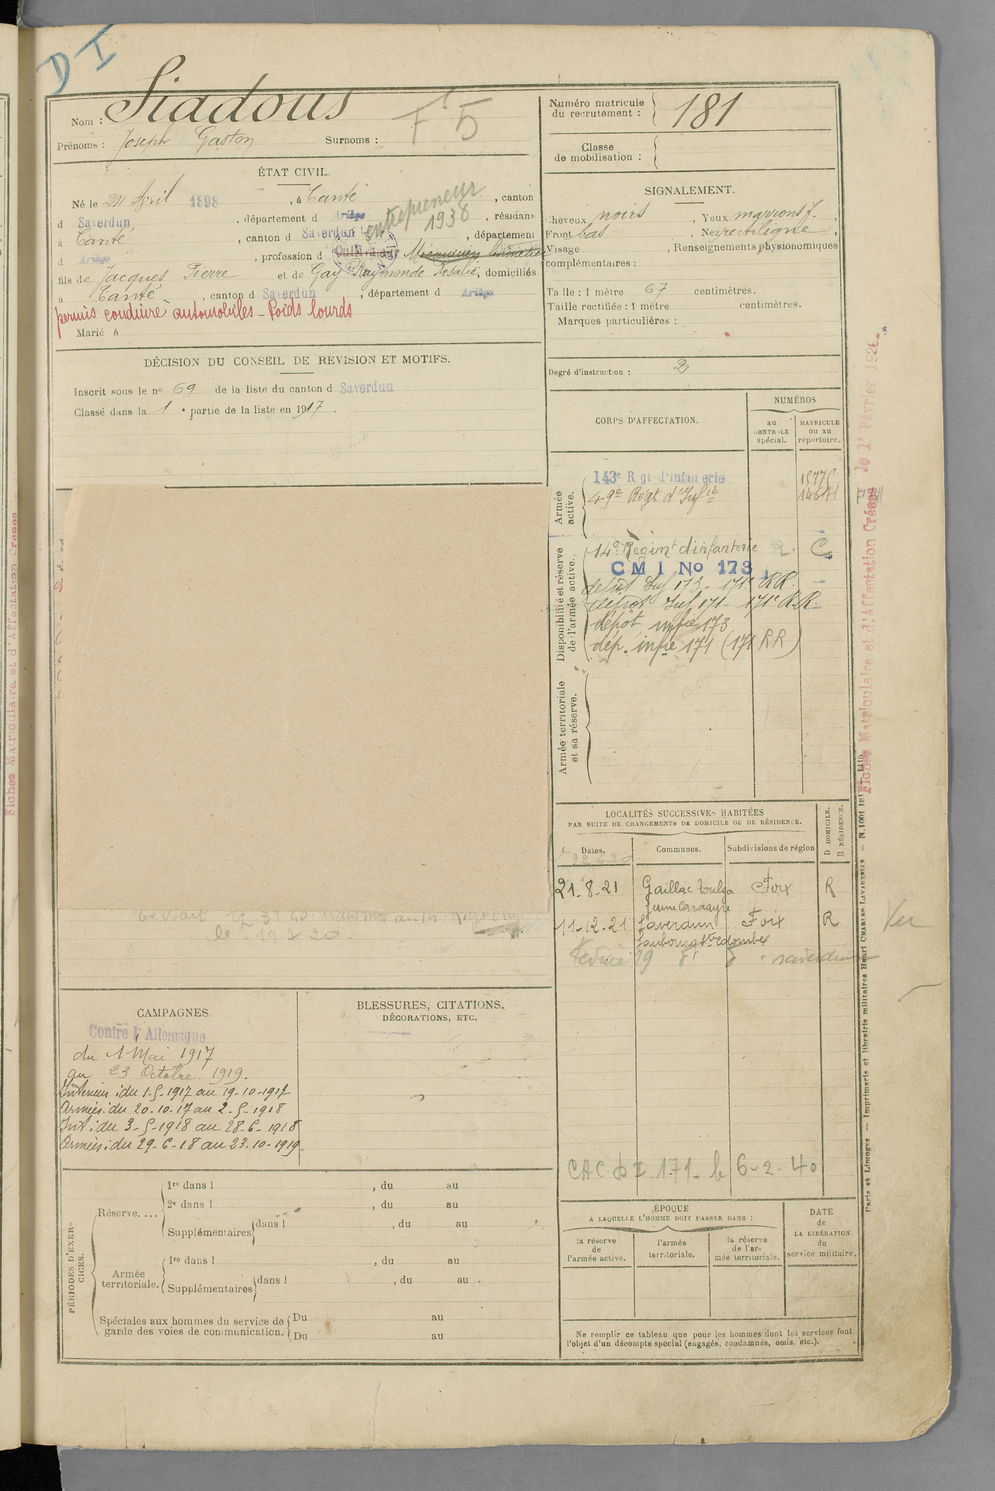 DI
Nom : Siadous
F5
Prénoms : Joseph Gaston Surnoms :
ÉTAT CIVIL.
Né le 24 Avril 1898, à Canté, canton
d Saverdun, département d Ariège, résidant
à Canté, canton d Saverdun, département
d Ariège, profession d Cultivateur Mécanicien
entrepreneur
1938
fils de Jacques Pierre et de Gay Raymonde Rosalie, domiciliés
à Canté, canton d Saverdun, département d Ariège
permis conduire automobiles - Poids lourds
Marié à
DÉCISION DU CONSEIL DE REVISION ET MOTIFS.
Inscrit sous le no 69 de la liste du canton d Saverdun
Classé dans la 1e partie de la liste en 1917.
le 19 7 20
CAMPAGNES.
Contre l'Allemagne
du 1 Mai 1917
au 23 Octobre 1919.
Intérieur : du 1-5-1917 au 19-10-1917
Armées : du 20-10-17 au 2-5-1918
Int : du 3-5-1918 au 28-6-1918
Armées : du 29-6-18 au 23-10-1919.
BLESSURES, CITATIONS,
DÉCORATIONS, ETC.
PÉRIODES D'EXERCICES.
Réserve....
1re dans l , du au
2e dans l , du au
Supplémentaires dans l , du au
Armée
territoriale.
1re dans l , du au
Supplémentaires dans l , du au .
Spéciales aux hommes du service de
garde des voies de communication.
Du au
Du au
Numéro matricule
du recrutement : 181
Classe
de mobilisation :
SIGNALEMENT.
Cheveux noirs, Yeux marrons f.,
Front bas, Nez rectiligne,
Visage , Renseignements physionomiques
complémentaires :
Taille : 1 mètre 67 centimètres.
Taille rectifiée : 1 mètre centimètres.
Marques particulières :
Degré d'instruction : 2
CORPS D'AFFECTATION.
NUMÉROS
au
CONTROLE
spécial.
MATRICULE
ou au
répertoire.
Armée
active.
143e Rgt d'infanterie
49e Régt d'Infie
Disponibilité et réserve
de l'armée active.
14e Régimt d'infanterie R. C
CMI No 173
dépôt Inf 173 - 171e RR.
dépôt Inf 171 - 171e R.R.
dépôt infie 173
dép. infie 171 (171 RR)
Armée territoriale
et sa réserve.
LOCALITÉS SUCCESSIVES HABITÉES
PAR SUITE DE CHANGEMENTS DE DOMICILE OU DE RÉSIDENCE.
Dates. Communes. Subdivisions de région
D DOMICILE.
R RÉSIDENCE.
21-8-21 Gaillac Toulza Foix R
11-12-21 Saverdun Foix R
Faubourg Ste Colombe
Ver
CAC d I 171 - le 6-2-40
ÉPOQUE
A LAQUELLE L'HOMME DOIT PASSER DANS :
la réserve
de
l'armée active.
l'armée
territoriale.
la réserve
de l'armée territoriale.
DATE
de
LA LIBÉRATION
du
service militaire.
Ne remplir ce tableau que pour les hommes dont les services font
l'objet d'un décompte spécial (engagés, condamnés, omis, etc.).
Fiches Matriculaire et d'Affectation Créées le 1er Février 1926.
Paris et Limoges. — Imprimerie et librairie militaires Henri CHARLES-LAVAUZELLE.
Fiches Matriculaire et d'Affectation Créées